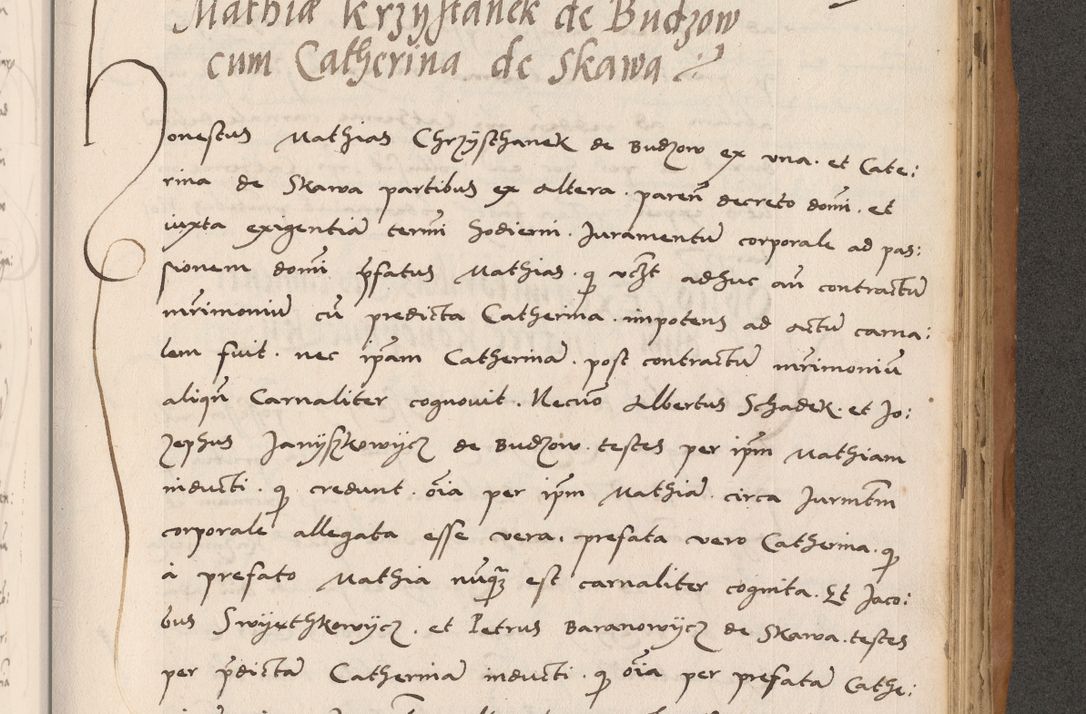 Mathiæ Krzystanek de Budzow
cum Catherina de Skawa
Honestus Mathias Chrzysthanek de Budzow ex una. et Cate:
rina de Skawa partibus ex altera. pareñ decreto domi. et
iuxta exigentiā termi hodierni. Juramentū corporale ad pas:
sionem domi p̄fatus Mathias. q̨ adhuc añ contractū
mr̄imoniū cū predicta Catherina. impotens ad actū carna:
lem fuit. nec ip̄am Catherinā. post contractū mr̄imoniū
aliqñ Carnaliter cognovit. Necnō Albertus Schadek. et Jo:
zephus Janyszkowycz de Budzow. testes per ip̄m Mathiam
inducti. q̨ credunt. ōia per ip̄m Mathiā. circa Jurmtm̄
corporale allegata esse vera. prefata vero Catherina. q̨
à prefato Mathia nuq̃ est carnaliter cognita. Et Jaco:
bus Swyrthkowycz. et Petrus Baranowycz de Skawa. testes
per p̄dictā Catherinā inducti. q̨ ōia per prefatā Cathe: